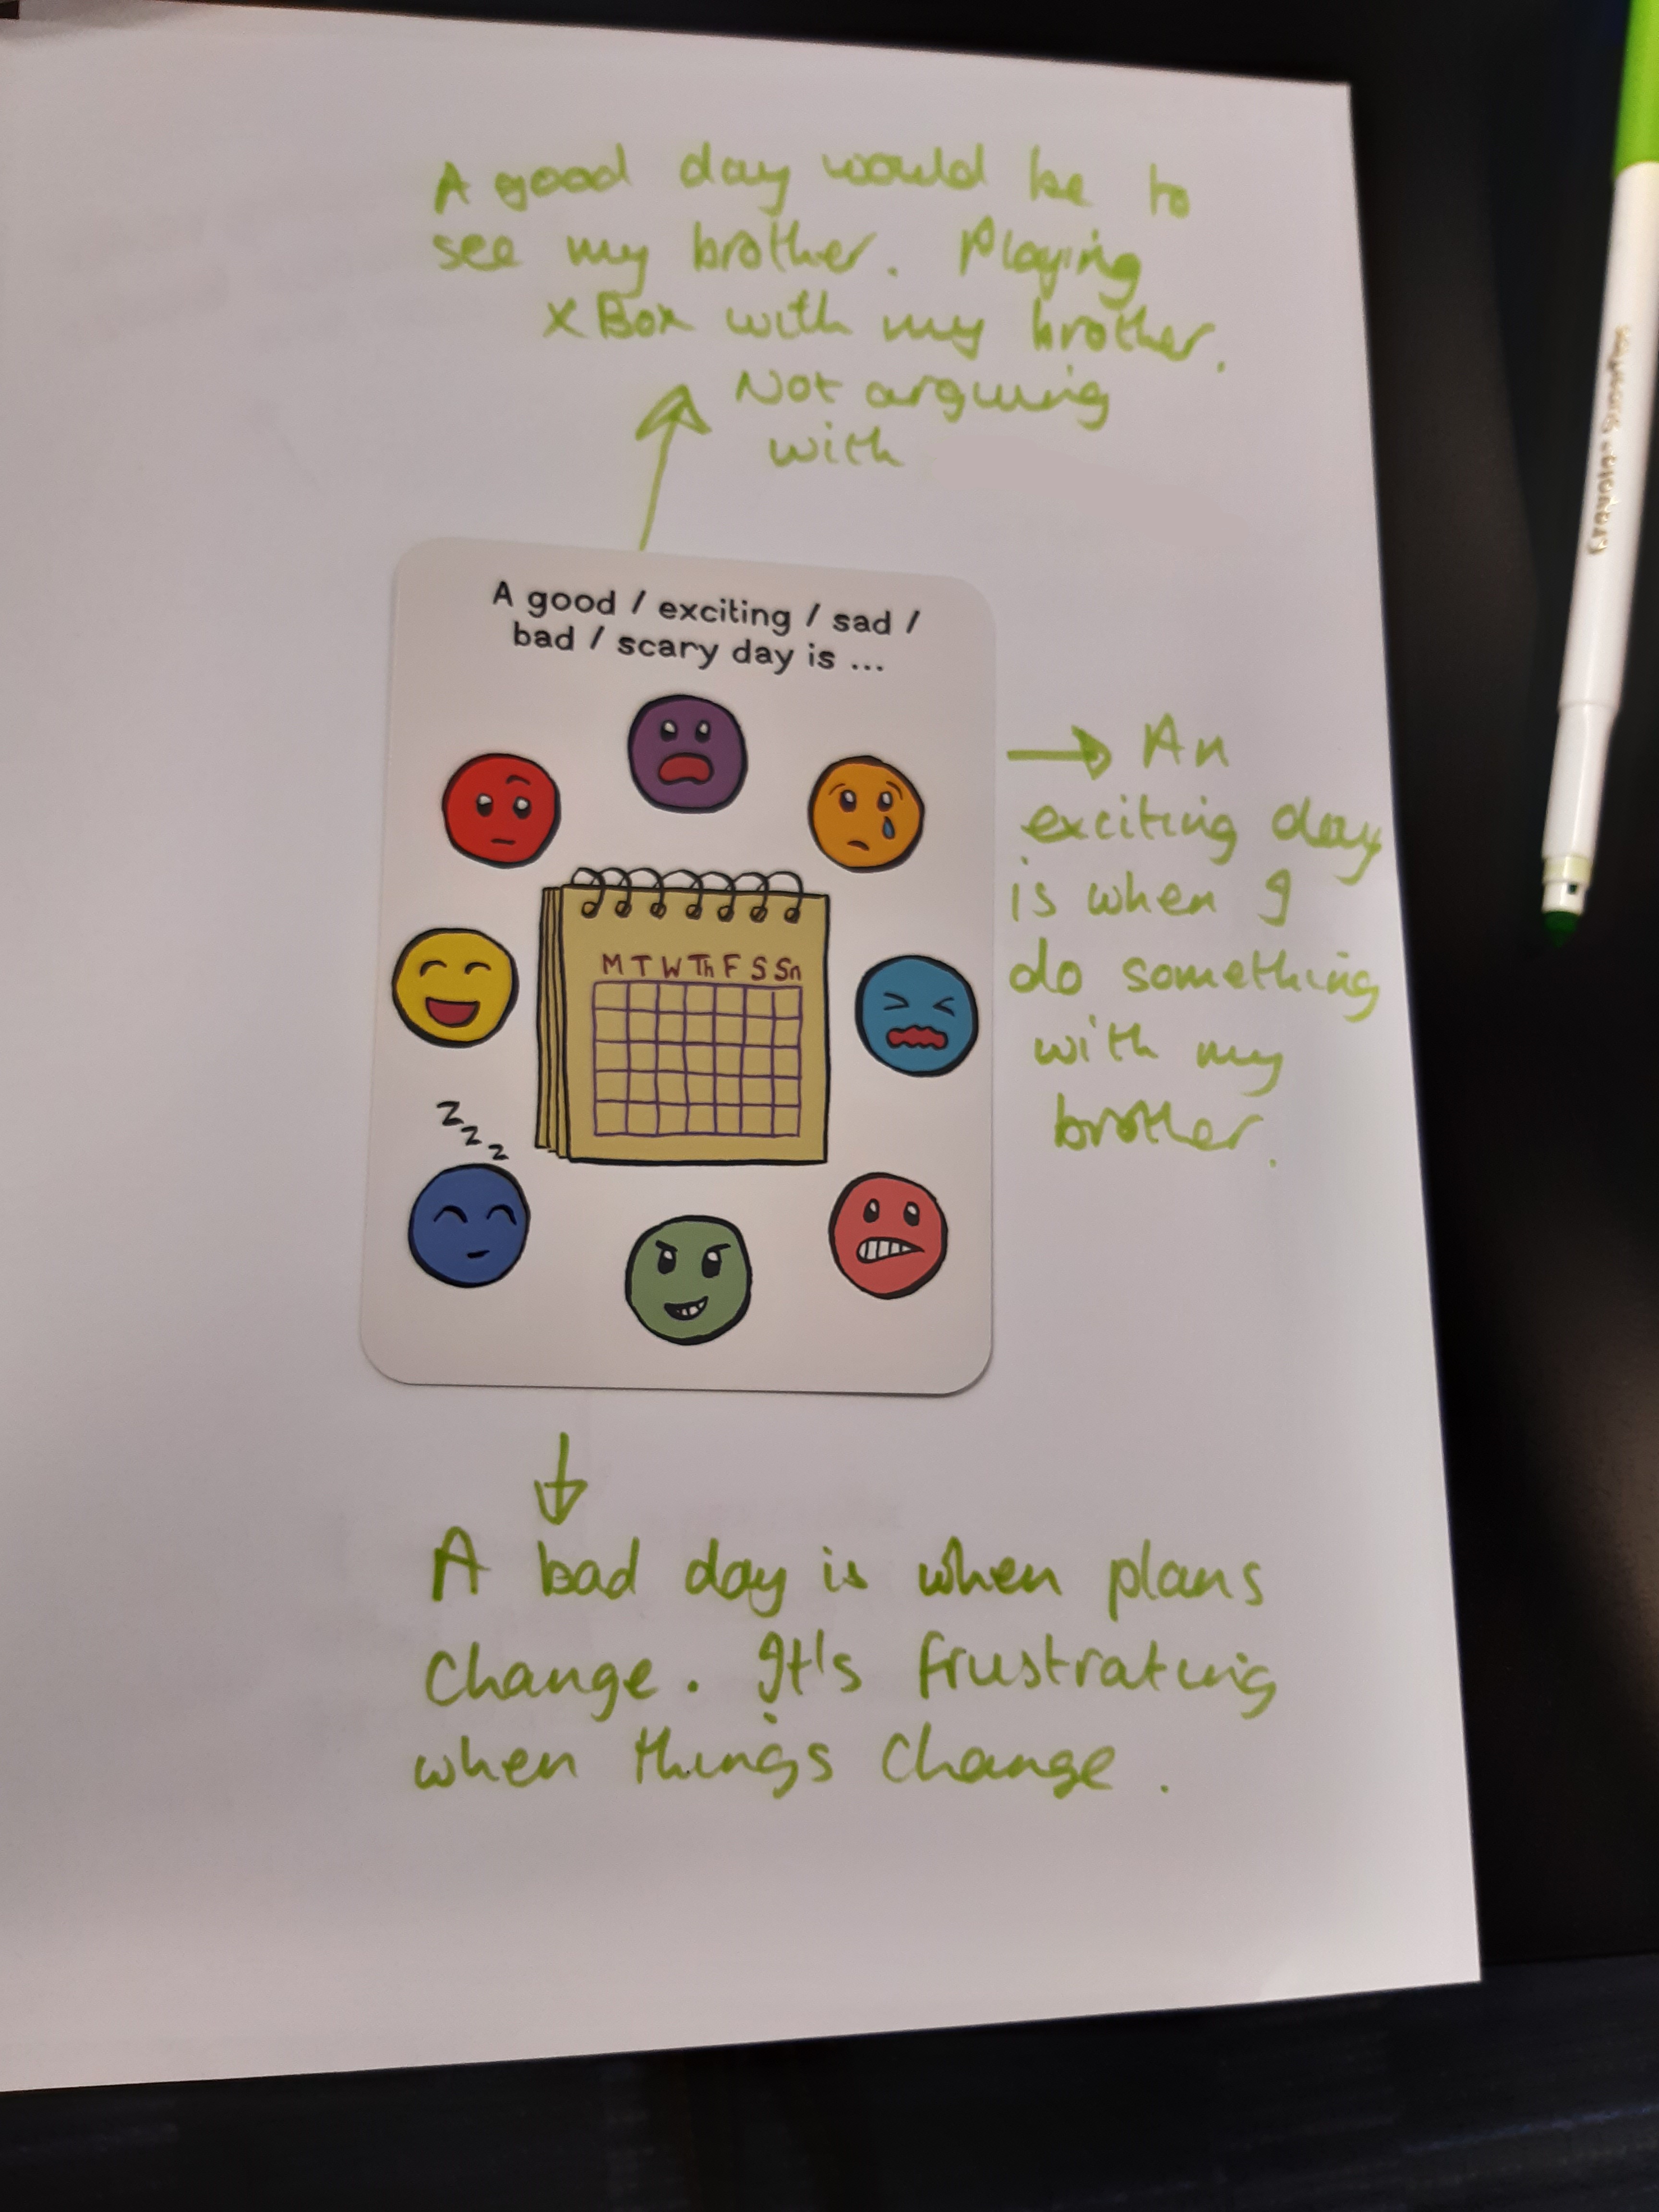 A good day would be to
see my brother. Playing
XBox with my brother.
Not arguing
with
A good / exciting / sad /
bad / scary day is ...
M T W Th F S Sn
z
z
z
→ An
exciting day
is when I
do something
with my
brother.
A bad day is when plans
change. It's frustrating
when things change.
Crayola SuperTips